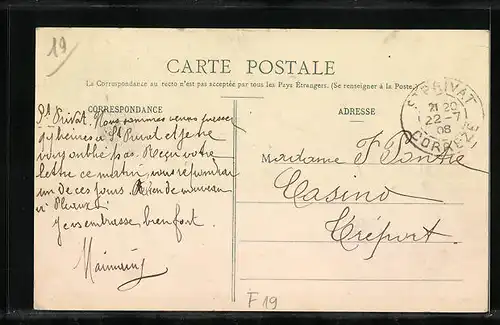 19
CARTE POSTALE
La Correspondance au recto n'est pas acceptée par tous les Pays Étrangers. (Se renseigner à la Poste.)
CORRESPONDANCE
ADRESSE
ST PRIVAT
21 20
22-7
08
CORRÈZE
St Privat. Nous sommes venus passer
qq heures à St Privat et je ne
vous oublie pas. Reçu votre
lettre ce matin, vous répondrai
un de ces jours. Rien de nouveau
à Pleaux.
Je vs embrasse bien fort.
Madame F
Casino
Tréport.
F 19